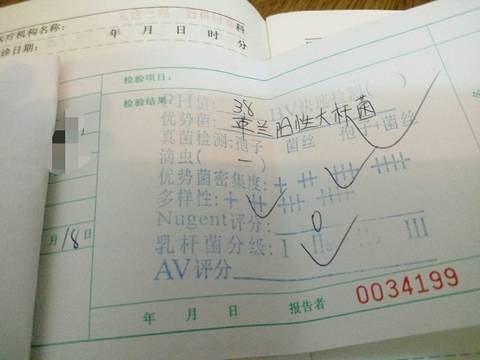 医疗机构名称:
科
诊日期:
年 月 日 时 分
检验项目:
检验结果:
PH值: 38 BV快速检测( )
优势菌: 革兰阳性大杆菌
真菌检测:孢子 菌丝 孢子+菌丝
滴虫( — )
优势菌密集度:+ ++ +++ ++++
多样性:+ ++ +++ ++++
Nugent评分: 0
乳杆菌分级: I II III
AV评分
月 18 日
年 月 日 报告者 0034199